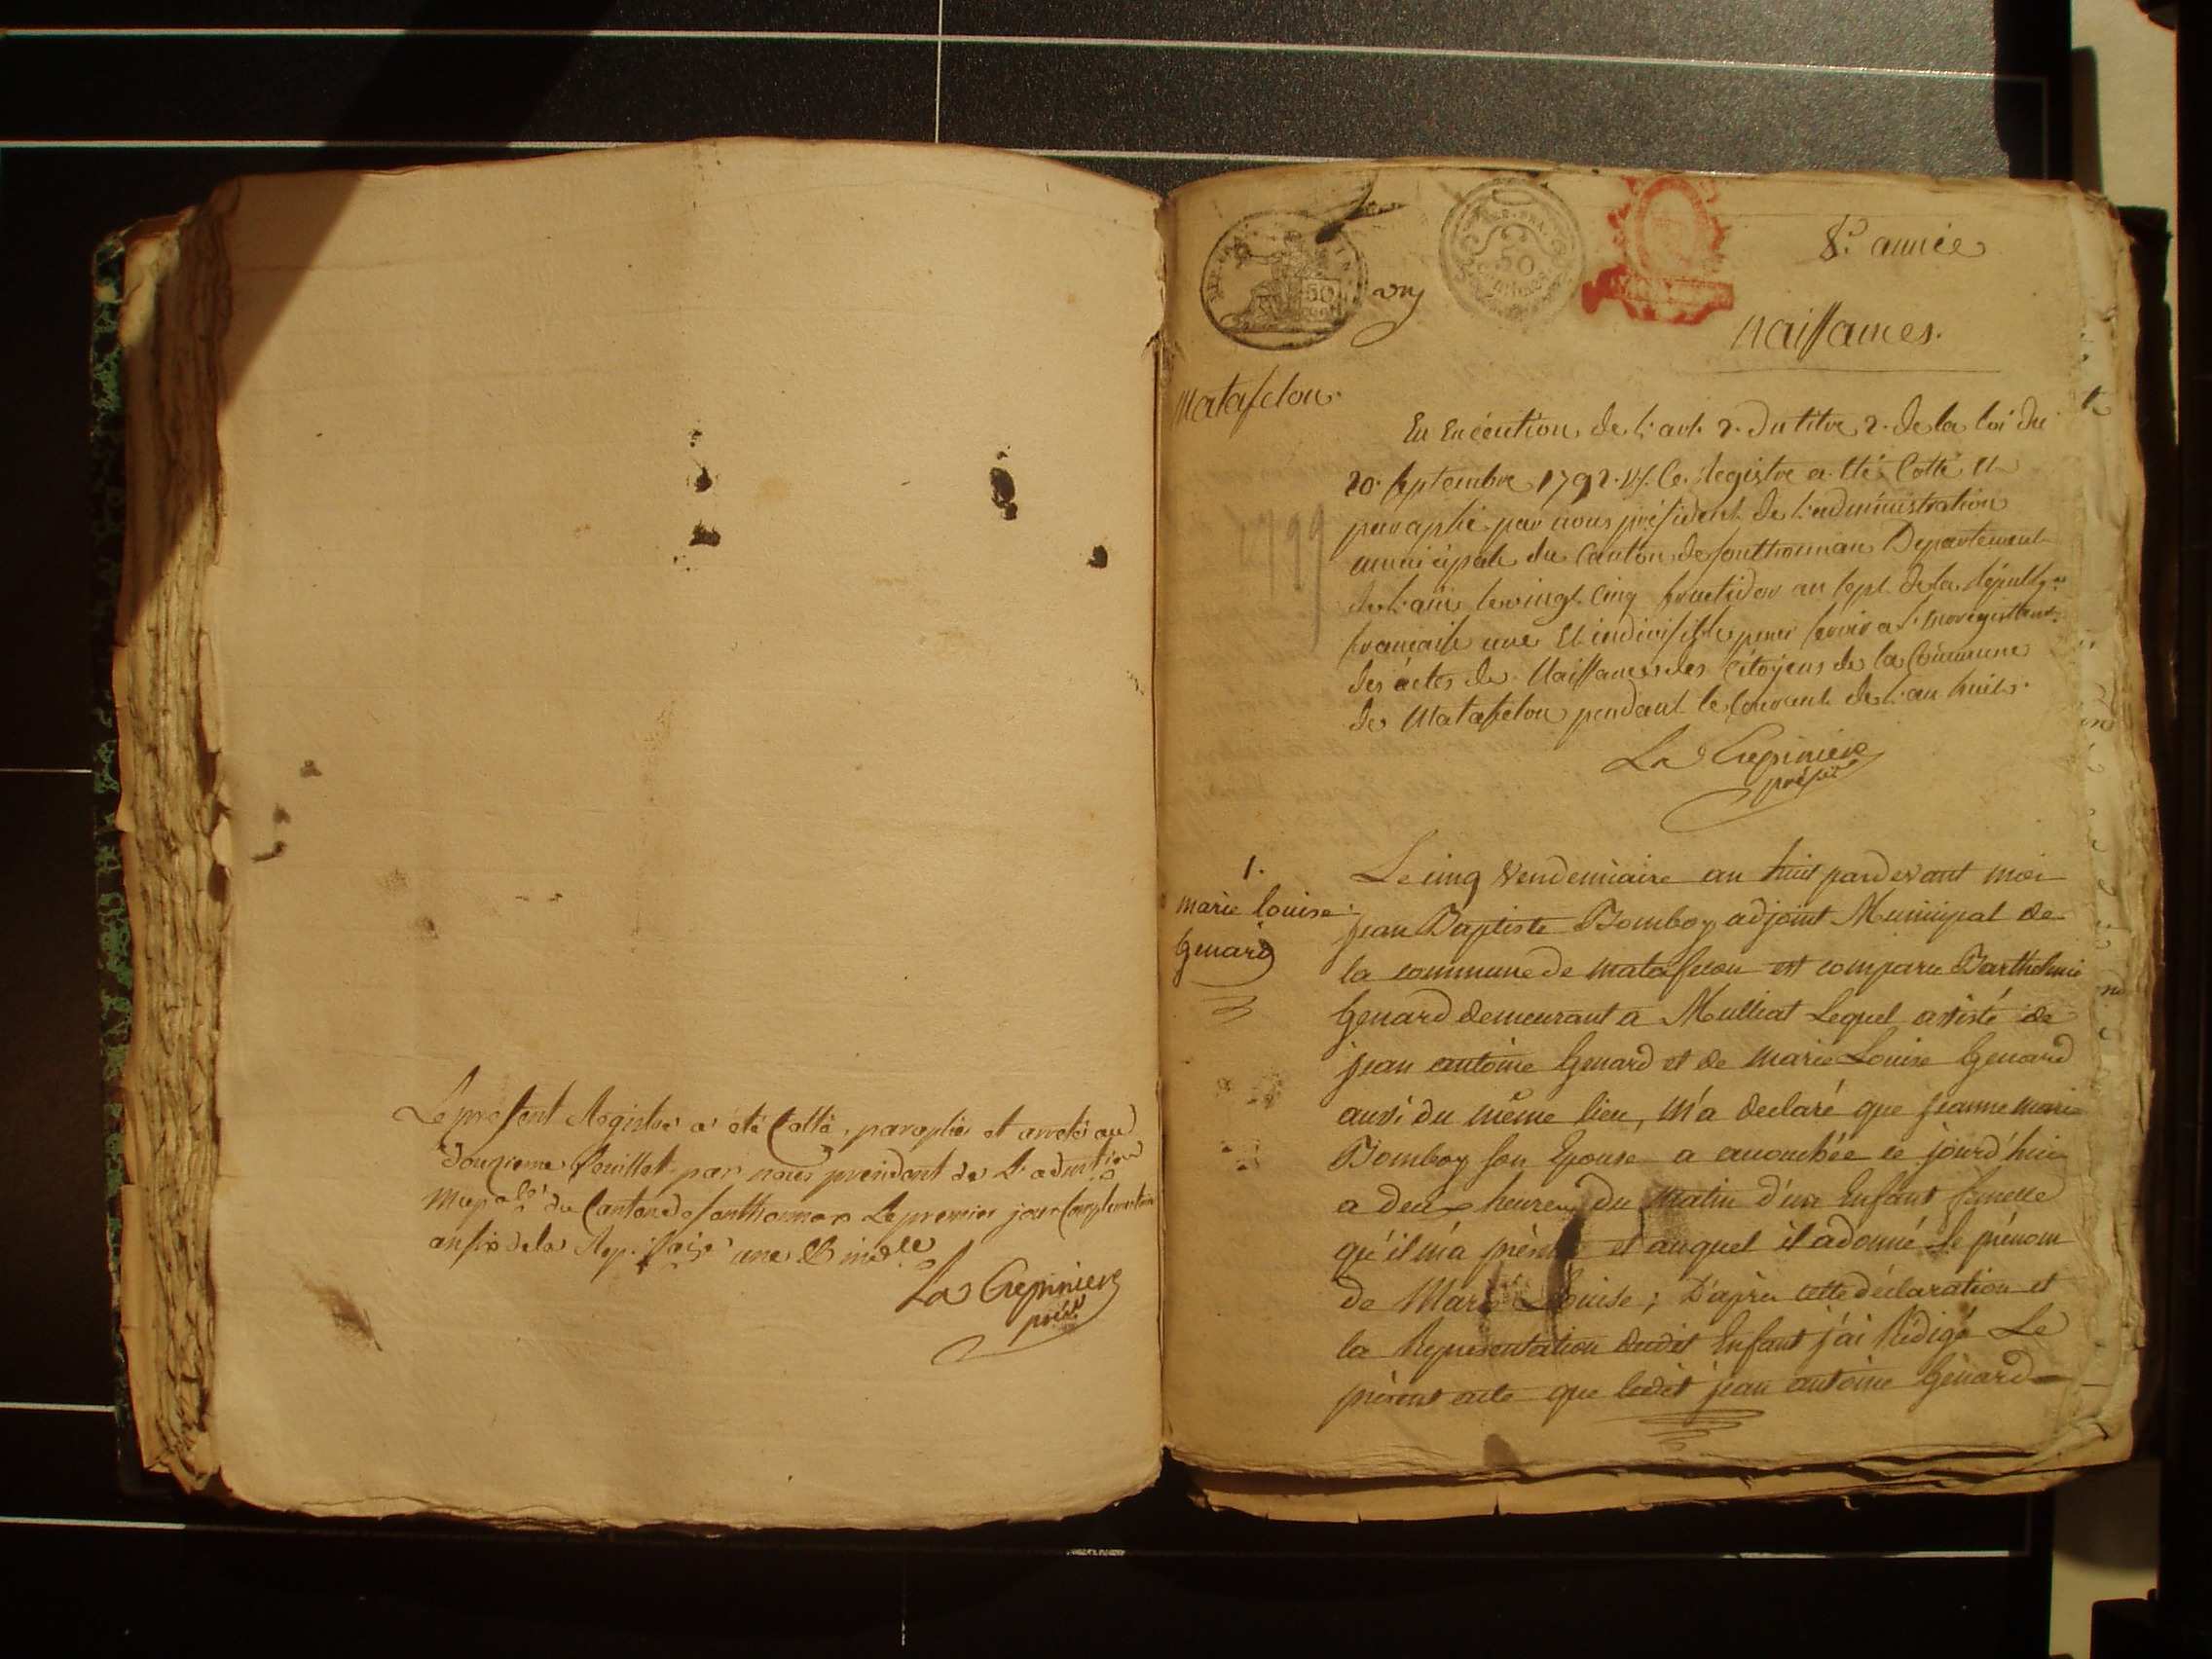 Le present Registre a été Cotté, paraphé et arreté au
Douzieme feuillet par nous president de L'adm.tion
Mup.ale du Canton de sonthonnax Le premier jour Complementaire
an six de la Rep. f.aise une & ind.le
La Crepiniere
présid.t
8.e année
REP. FRA.
50
50
naissances.
Matafelon.
En Execution de l'art. 2. du titre 2. de la loi du
20. septembre 1792. Vs. Ce Registre a été Cotté et
paraphé par nous président de l'administration
municipale du Canton de sonthonnax Departement
de l'ain le vingt Cinq fructidor an sept de la Républ.e
francaise une et indivisible pour servir a l'enregistrem.t
des actes de Naissances des Citoyens de la Commune
de Matafelon pendant le Courant de l'an huit.
La Crepiniere
présid.t
1799
1.
marie louise
Genard
Le cinq Vendemiaire an huit pardevant moi
jean Baptiste Bomboy adjoint Municipal de
la commune de matafelon est comparu Barthelmie
Genard demeurant a Mulliat Lequel assisté de
jean antoine Genard et de marie Louise Genard
aussi du même lieu, m'a declaré que jeanne marie
Bomboy son Epouse a accouchée ce jourd'hui
a deux heures du matin d'un Enfant femelle
qu'il m'a présenté et auquel il a donné Le prénom
de Marie Louise ; D'après cette déclaration et
la Representation dudit Enfant j'ai Rédigé Le
présent acte que ledit jean antoine Genard